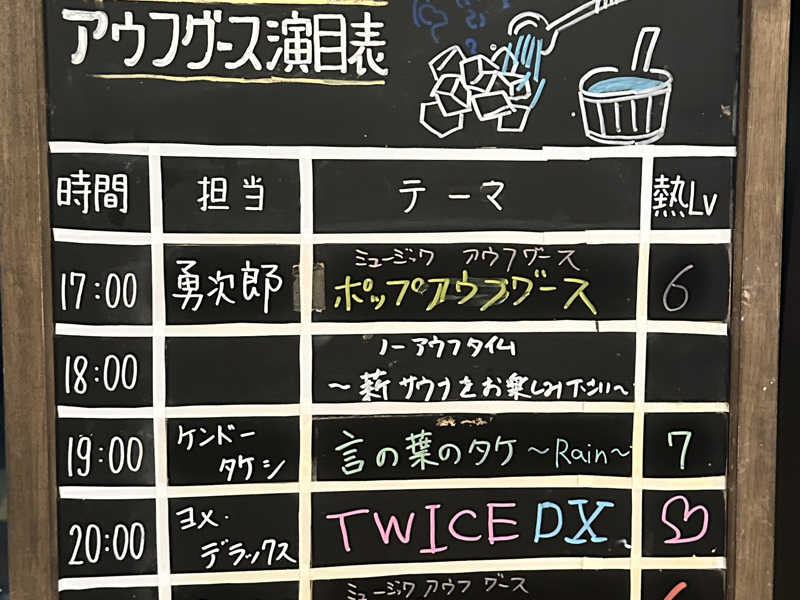 アウフグース演目表
時間 担当 テーマ 熱Lv
ミュージック アウフグース
17:00 勇次郎 ポップアウフグース 6
ノーアウフタイム
18:00
～薪サウナをお楽しみ下さい～
ケンドー
19:00 言の葉のタケ ～Rain～ 7
タケシ
ヨメ・
20:00 TWICE DX
デラックス
ミュージック アウフグース